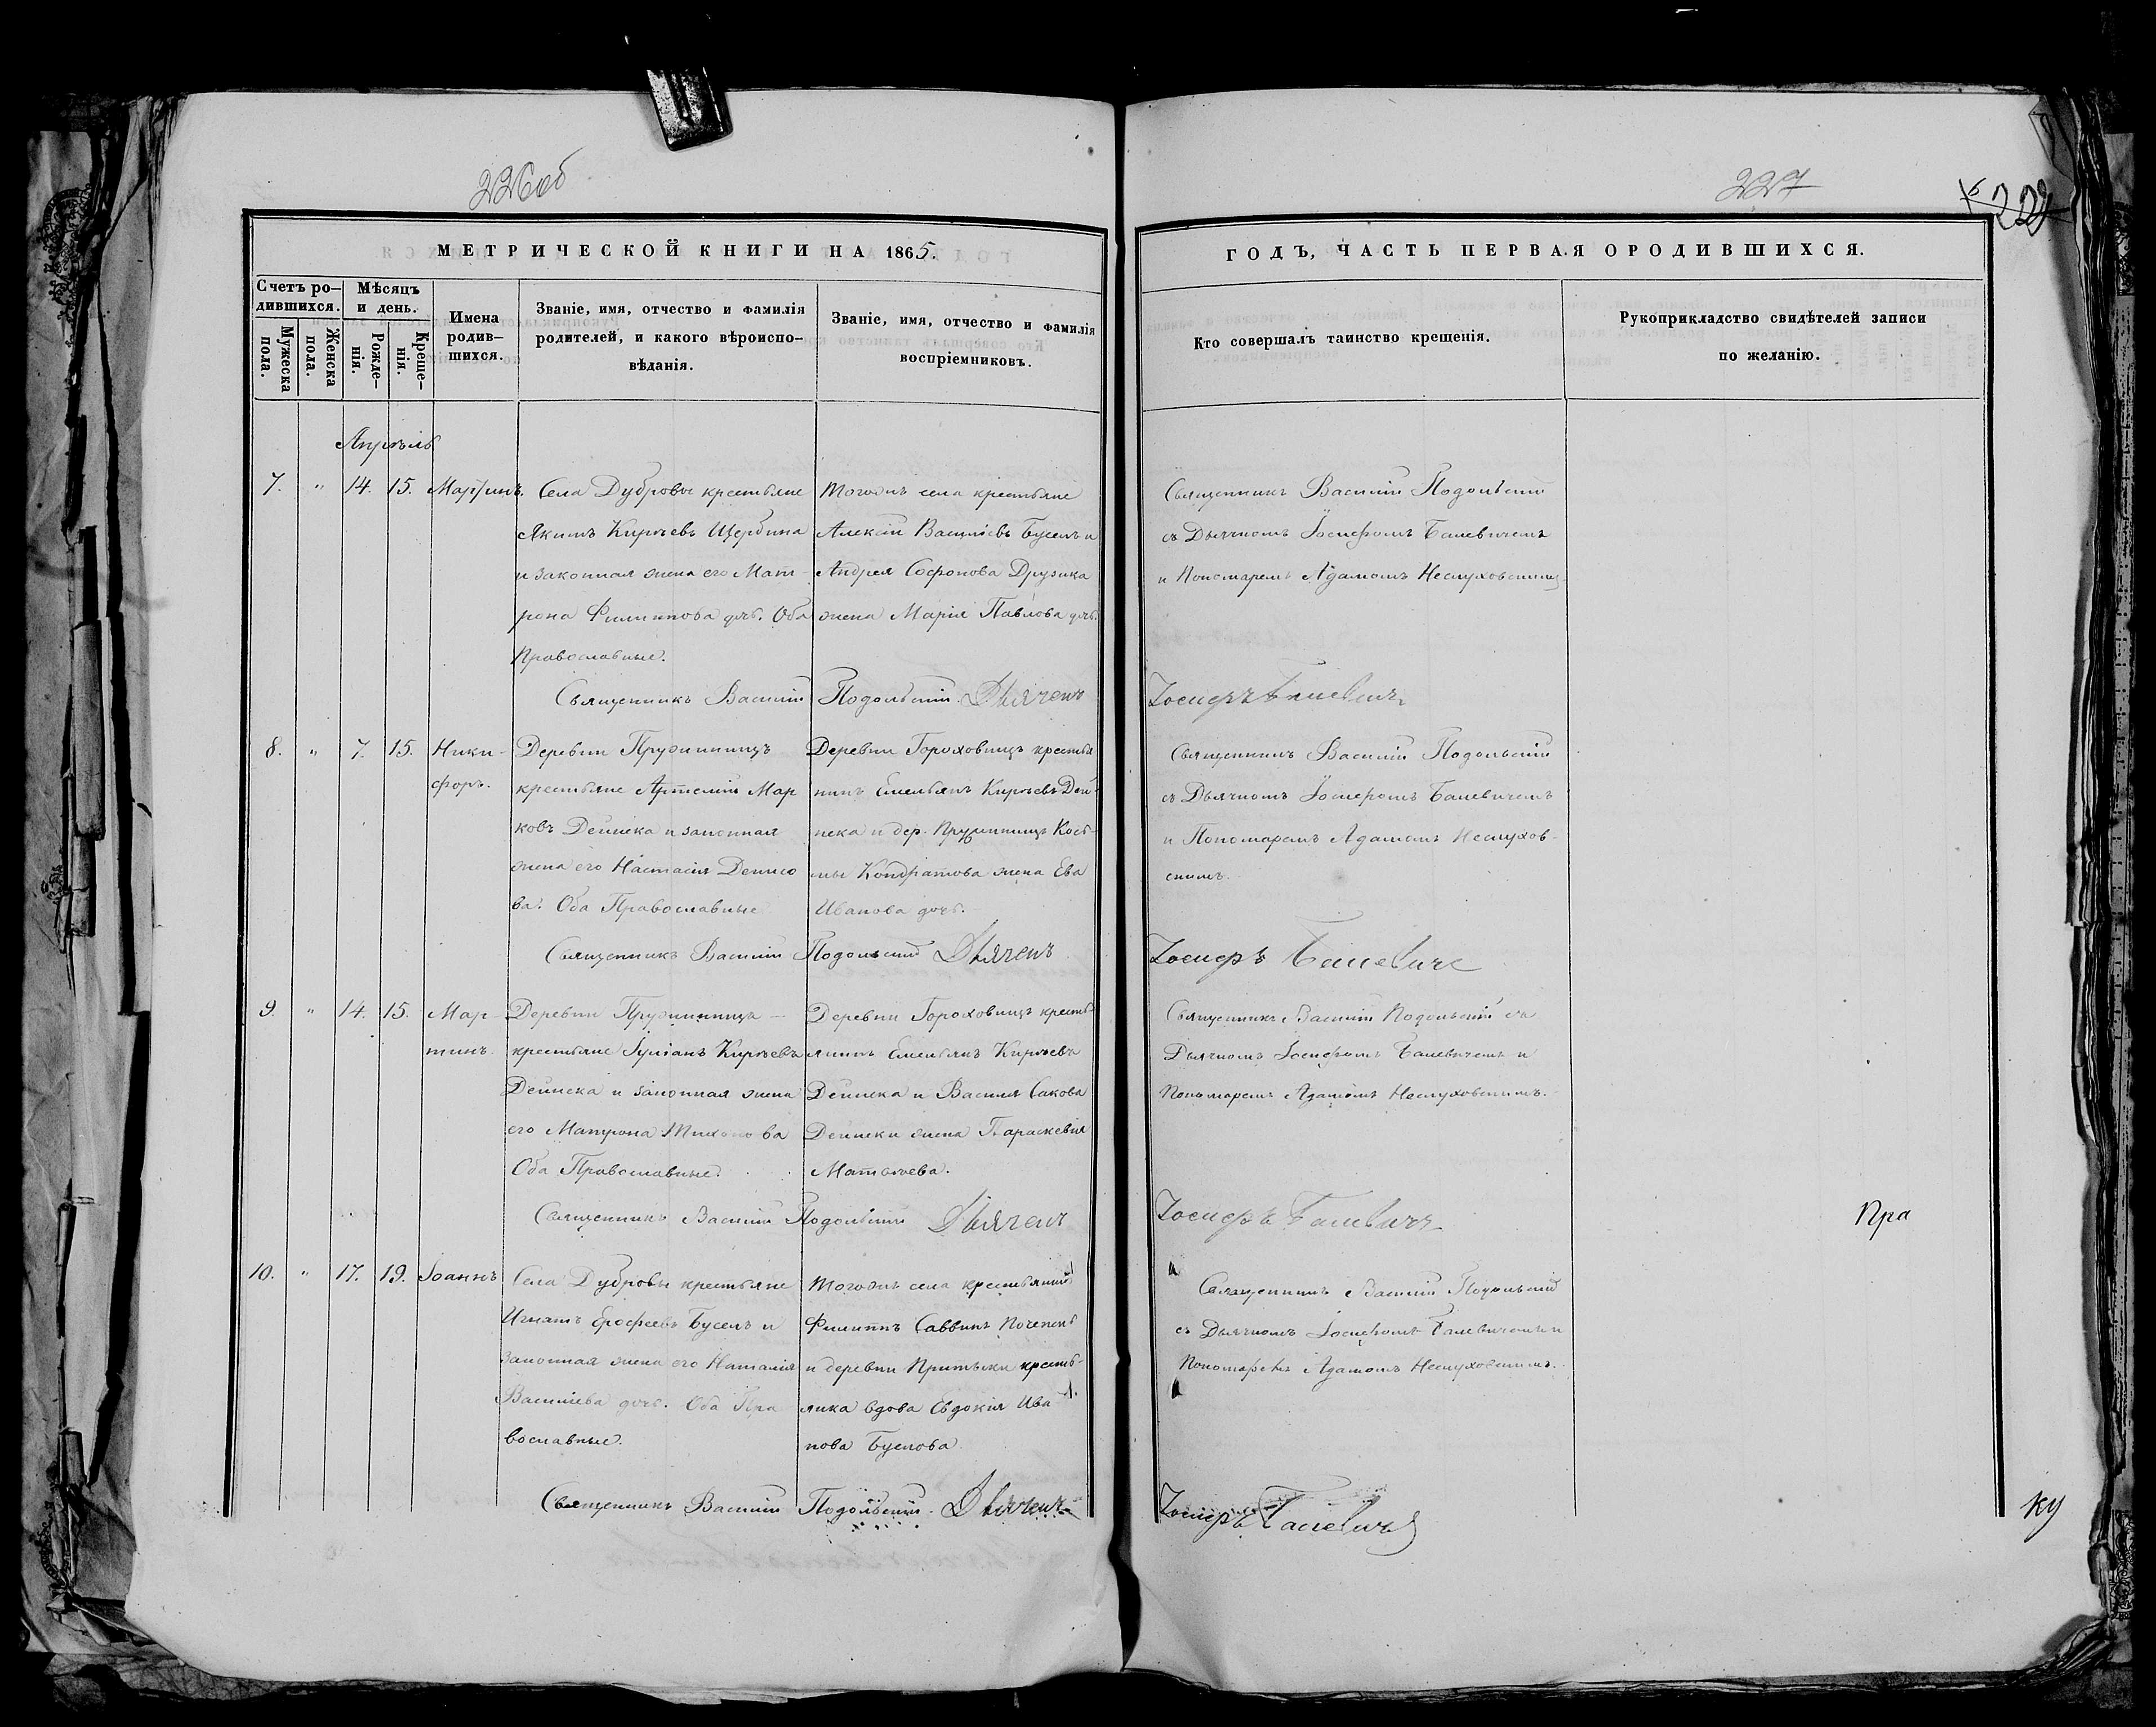 226об
227
МЕТРИЧЕСКОЙ КНИГИ НА 1865.
ГОДЪ, ЧАСТЬ ПЕРВАЯ О РОДИВШИХСЯ.
Счетъ ро-
дившихся.
Мужеска
пола.
Женска
пола.
Мѣсяцъ
и день.
Рожде-
нія.
Креще-
нія.
Имена
родив-
шихся.
Званіе, имя, отчество и фамилія
родителей, и какого вѣроиспо-
вѣданія.
Званіе, имя, отчество и фамилія
воспріемниковъ.
Кто совершалъ таинство крещенія.
Рукоприкладство свидѣтелей записи
по желанію.
Апрѣль
7. " 14. 15. Мартинъ.
Села Дубровы крестьяне
Якимъ Кирѣевъ Щербина
и законная жена его Мат-
рона Филиппова дчь. Оба
Православные.
Тогожъ села крестьяне
Алексій Василіевъ Буселъ и
Андрея Софонова Друзика
жена Марія Павлова дчь.
Священникъ Василій Подольскій
съ Дьячкомъ Іосифомъ Балевичемъ
и Пономаремъ Адамомъ Неслуховскимъ
Священникъ Василій Подольскій. Дьячекъ
Іосифъ Балевичъ
8. " 7. 15. Ники-
форъ.
Деревни Пружинищъ
крестьяне Артемій Мар
ковъ Дейнека и законная
жена его Настасія Денисо
ва. Оба Православные
Деревни Гороховищъ крестья
нинъ Емельянъ Кирѣевъ Дей-
нека и дер. Пружинищъ Кось-
мы Кондратова жена Ева
Иванова дочь.
Священникъ Василій Подольскій
съ Дьячкомъ Іосифомъ Балевичемъ
и Пономаремъ Адамомъ Неслухов-
скимъ.
Священникъ Василій Подольскій Дьячекъ
Іосифъ Балевичъ
9. " 14. 15. Мар-
тинъ.
Деревни Пружинищъ —
крестьяне Іуліанъ Кирѣевъ
Дейнека и законная жена
его Матрона Тихонова
Оба Православные.
Деревни Гороховищъ кресть
янинъ Емельянъ Кирѣевъ
Дейнека и Василія Сакова
Дейнеки жена Параскевія
Матвѣева.
Священникъ Василій Подольскій съ
Дьячкомъ Іосифомъ Балевичемъ и
Пономаремъ Адамомъ Неслуховскимъ.
Священникъ Василій Подольскій Дьячекъ
Іосифъ Балевичъ
Пра
10. " 17. 19. Іоаннъ
Села Дубровы крестьяне
Игнатъ Ерофеевъ Буселъ и
законная жена его Наталія
Василіева дочь. Оба Пра
вославные.
Тогожъ села крестьянинъ
Филиппъ Саввинъ
и деревни Притыки кресть-
янка вдова Евдокія Ива
нова Буслова
Священникъ Василій Подольскій
съ Дьячкомъ Іосифомъ Балевичемъ и
Пономаремъ Адамомъ Неслуховскимъ.
Священникъ Василій Подольскій. Дьячекъ
Іосифъ Балевичъ
ку